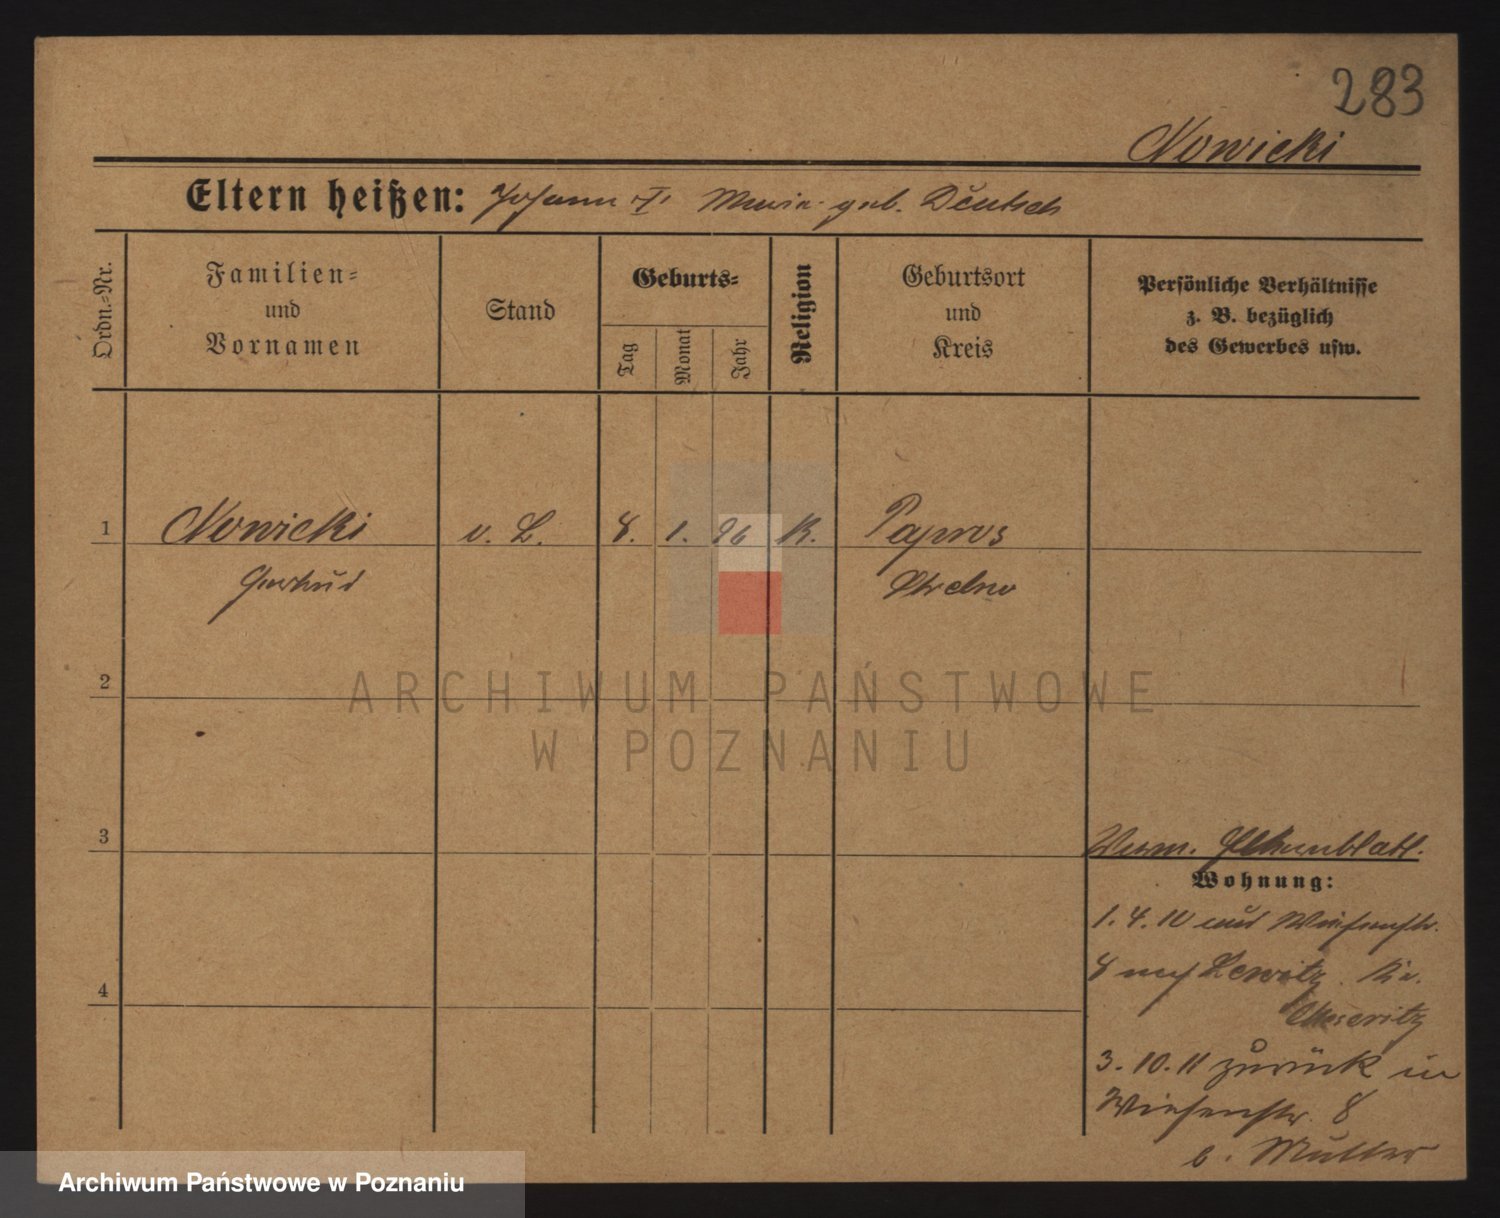 283
Nowicki
Eltern heißen: Johann I. Maria geb. Deutsch
Ordn.=Nr.
Familien=
und
Vornamen
Stand
Geburts=
Tag
Monat
Jahr
Religion
Geburtsort
und
Kreis
Persönliche Verhältnisse
z. B. bezüglich
des Gewerbes usw.
1 Nowicki v. L. 8. 1. 96 K. Papros
Gertrud Strelno
2
ARCHIWUM PAŃSTWOWE
W POZNANIU
3
Verm.
Wohnung:
1. 4. 10 aus Wiesenstr.
8 nach Lewitz. Kr.
Meseritz
4
3. 10. 11 zurück in
Wiesenstr. 8
b. Mutter
Archiwum Państwowe w Poznaniu